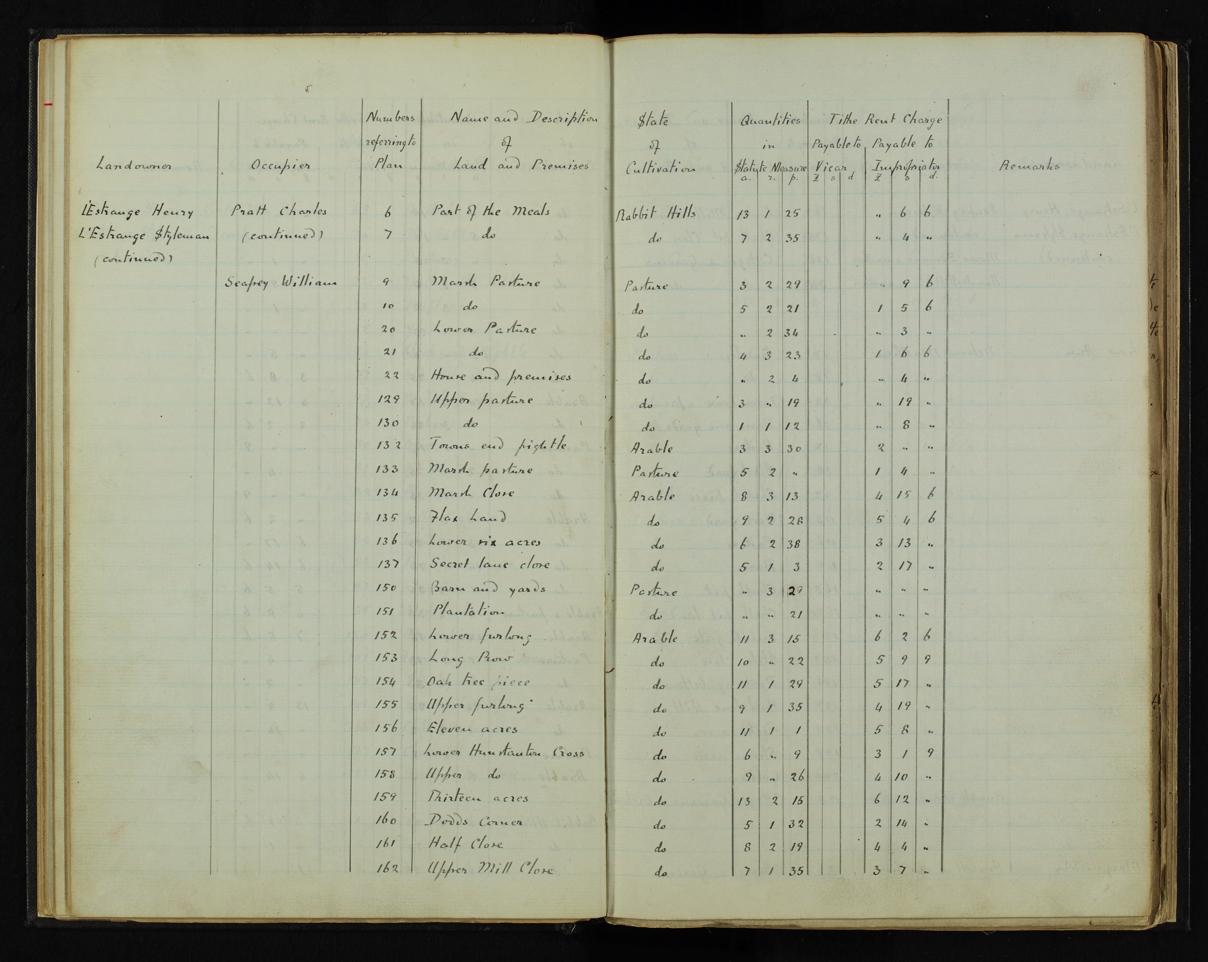 Numbers Name and Description State Quantities Tithe Rent Charge
referring to of of in Payable to Payable to
Landowner Occupier Plan Land and Premises Cultivation Statute Measure Vicar Impropriator Remarks
a. r. p. £ s d £ s d.
L'Estrange Henry Pratt Charles 6 Part of the Meals Rabbit Hills 13 1 25 " 6 6
L'Estrange Styleman (continued) 7 do do 7 2 35 " 4 "
(continued)
Seapey William 9 Marsh Pasture Pasture 3 2 29 " 9 6
10 do do 5 2 21 1 5 6
20 Lower Pasture do " 2 34 " 3 "
21 do do 4 3 23 1 6 6
22 House and premises do " 2 4 " 4 "
129 Upper pasture do 3 " 19 " 19 "
130 do do 1 1 12 " 8 "
132 Towns end pightle Arable 3 3 30 2 " "
133 Marsh pasture Pasture 5 2 " 1 4 "
134 Marsh Close Arable 8 3 13 4 15 6
135 Flax Land do 9 2 28 5 4 6
136 Lower six acres do 6 2 38 3 13 "
137 Secret lane close do 5 1 3 2 17 "
150 Barn and yards Pasture " 3 29 " " "
151 Plantation do " " 21 " " "
152 Lower furlong Arable 11 3 15 6 2 6
153 Long Row do 10 " 22 5 9 9
154 Oak tree piece do 11 1 29 5 17 "
155 Upper furlong do 9 1 35 4 19 "
156 Eleven acres do 11 1 1 5 8 "
157 Lower Hunstanton Cross do 6 " 9 3 1 9
158 Upper do do 9 " 26 4 10 "
159 Thirteen acres do 13 2 15 6 12 "
160 Dodds Corner do 5 1 32 2 14 "
161 Half Close do 8 2 19 4 4 "
162 Upper Mill Close do 7 1 35 3 7 "